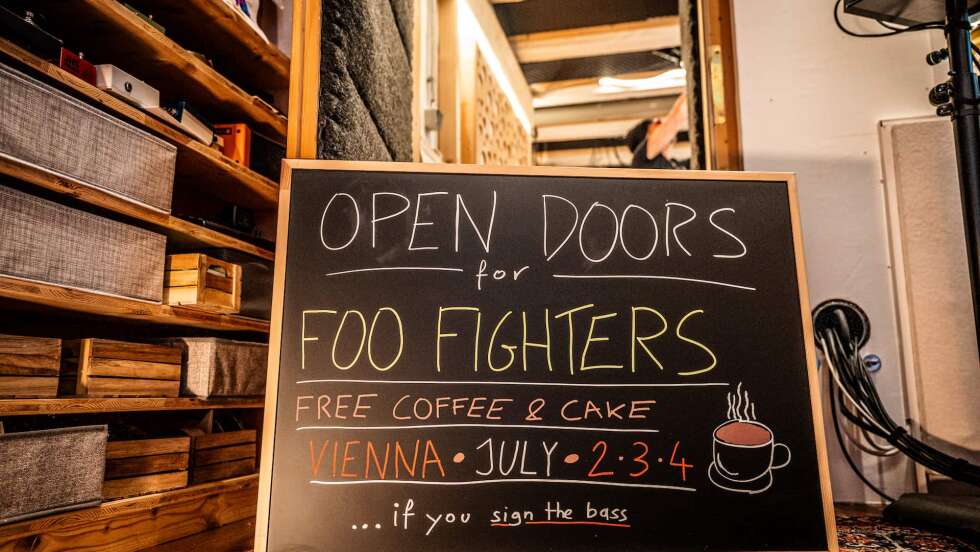 OPEN DOORS
for
FOO FIGHTERS
FREE COFFEE & CAKE
VIENNA • JULY • 2•3•4
... if you sign the bass